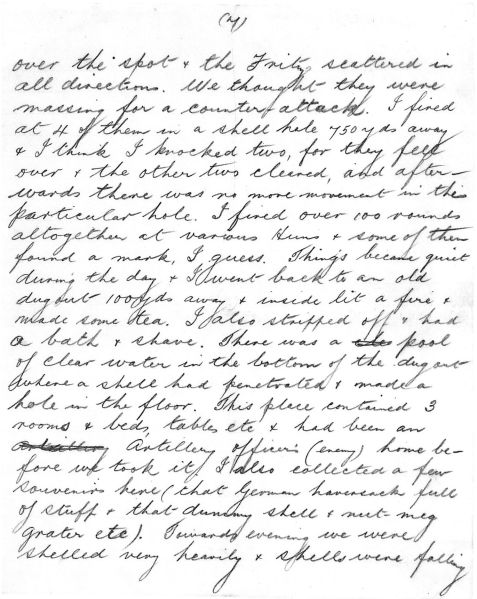 (7)
over the spot & the Fritz scattered in
all directions. We thought they were
massing for a counter attack. I fired
at 4 of them in a shell hole 750 yds away
& I think I knocked two, for they fell
over & the other two cleared, and after-
wards there was no more movement in this
particular hole. I fired over 100 rounds
altogether at various Huns & some of them
found a mark, I guess. Things became quiet
during the day & I went back to an old
dugout 100 yds away & inside lit a fire &
made some tea. I also stripped off & had
a bath & shave. There was a pool
of clear water in the bottom of the dugout
where a shell had penetrated & made a
hole in the floor. This place contained 3
rooms & beds, tables etc & had been an
Artillery officers (enemy) home be-
fore we took it. I also collected a few
souvenirs here (that German haversack full
of stuff & that dummy shell & nut-meg
grater etc). Towards evening we were
shelled very heavily & shells were falling